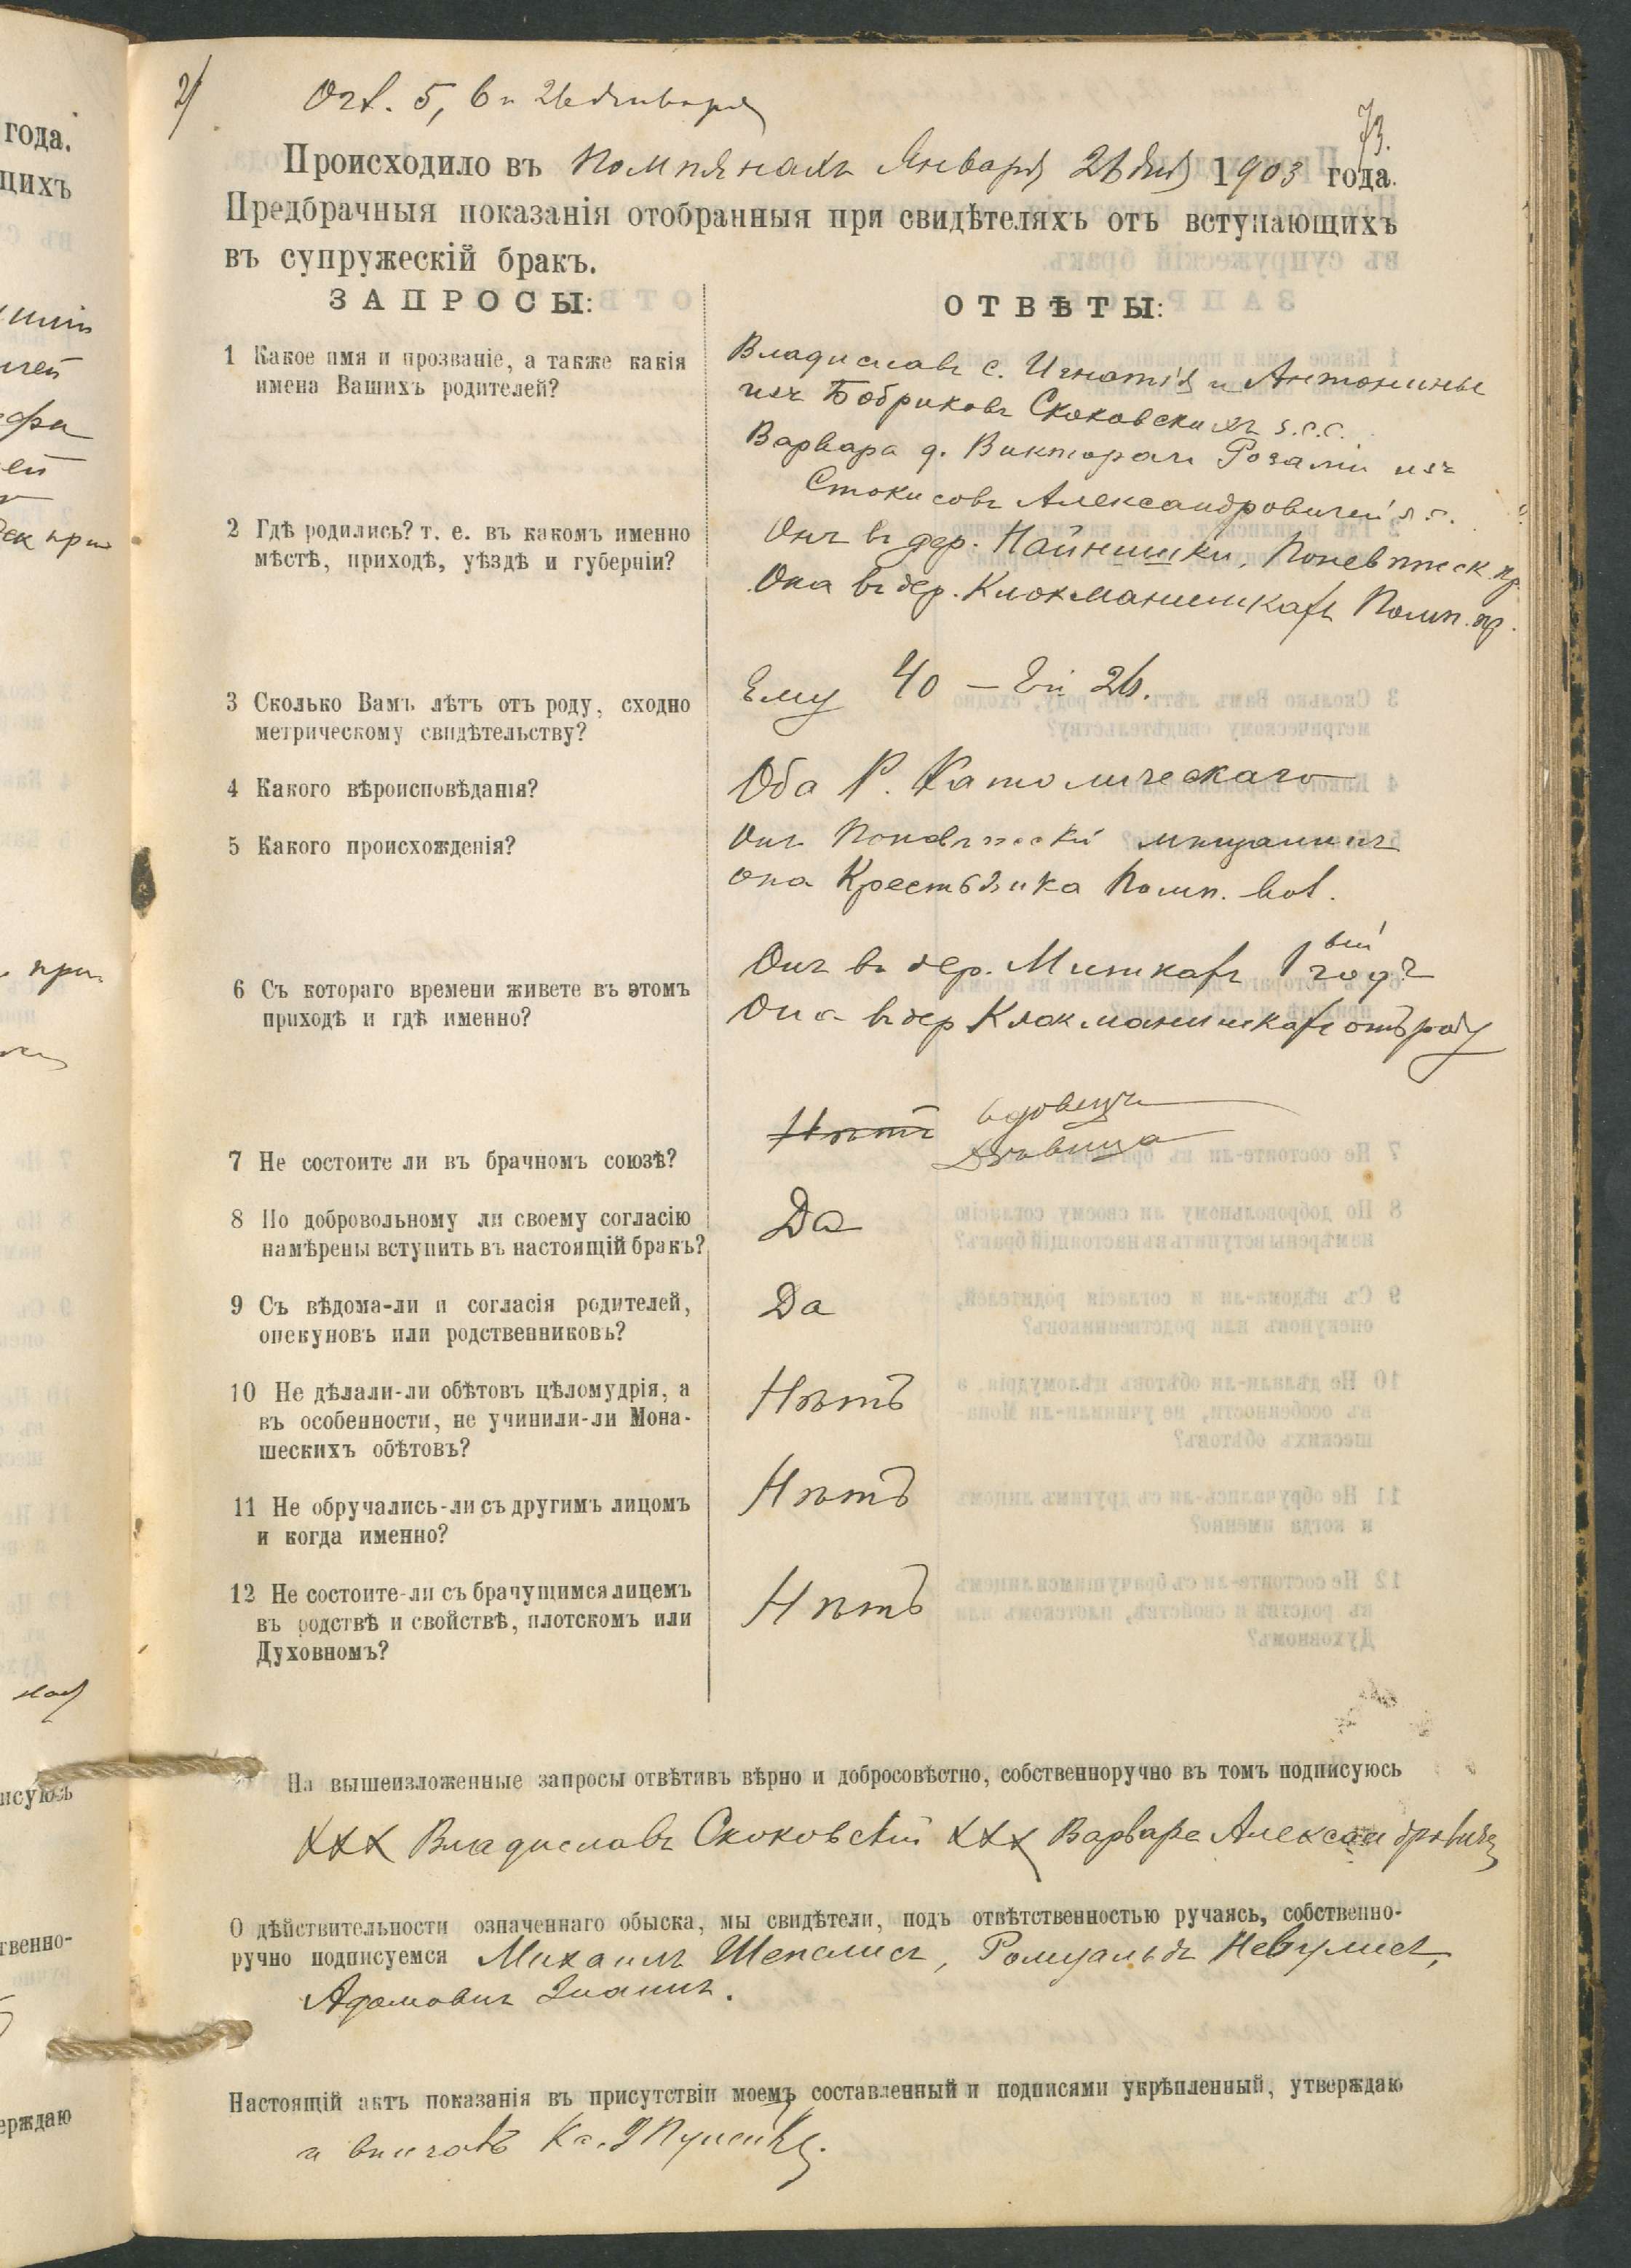 2/
Огл. 5, 6 и 26 Января
73.
Происходило въ Помпянахъ Января 26 дня 1903 года.
Предбрачныя показанія отобранныя при свидѣтеляхъ отъ вступающихъ
въ супружескій бракъ.
ЗАПРОСЫ:
ОТВѢТЫ:
1 Какое имя и прозваніе, а также какія
имена Вашихъ родителей?
Владиславъ с. Игнатія и Антонины
изъ Бобриковъ Скоковскихъ з.с.с.
Варвара д. Виктора и Розаліи изъ
Стокисовъ Александровичей
2 Гдѣ родились? т. е. въ какомъ именно
мѣстѣ, приходѣ, уѣздѣ и губерніи?
Онъ въ дер. Найнишки, Поневѣжск. пр.
Она въ дер. Клокманишкахъ Помп. пр.
3 Сколько Вамъ лѣтъ отъ роду, сходно
метрическому свидѣтельству?
Ему 40 – Ей 26.
4 Какого вѣроисповѣданія?
Оба Р. Католическаго
5 Какого происхожденія?
Онъ Поневѣжскій мѣщанинъ
она Крестьянка Помп. вол.
6 Съ котораго времени живете въ этомъ
приходѣ и гдѣ именно?
Онъ въ дер. Мишкахъ 1вый годъ
Она въ дер Клокманишкахъ отъ роду
7 Не состоите ли въ брачномъ союзѣ?
Нѣтъ вдовецъ
дѣвица
8 По добровольному ли своему согласію
намѣрены вступить въ настоящій бракъ?
Да
9 Съ вѣдома-ли и согласія родителей,
опекуновъ или родственниковъ?
Да
10 Не дѣлали-ли обѣтовъ цѣломудрія, а
въ особенности, не учинили-ли Мона-
шескихъ обѣтовъ?
Нѣтъ
11 Не обручались-ли съ другимъ лицомъ
и когда именно?
Нѣтъ
12 Не состоите-ли съ брачущимся лицемъ
въ родствѣ и свойствѣ, плотскомъ или
Духовномъ?
Нѣтъ
На вышеизложенные запросы отвѣтивъ вѣрно и добросовѣстно, собственноручно въ томъ подписуюсь
ХХХ Владиславъ Скоковскій ХХХ Варвара Александровичъ
О дѣйствительности означеннаго обыска, мы свидѣтели, подъ отвѣтственностью ручаясь, собственно-
ручно подписуемся Михаилъ Шепалисъ, Ромуальдъ Невулисъ,
Адамовичъ
Настоящій актъ показанія въ присутствіи моемъ составленный и подписями укрѣпленный, утверждаю
и внизалъ Кс.